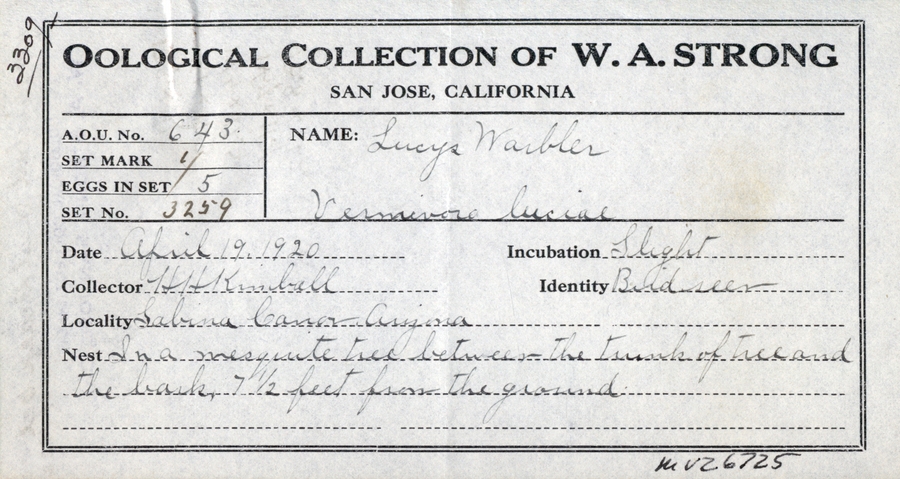 3209
OOLOGICAL COLLECTION OF W. A. STRONG
SAN JOSE, CALIFORNIA
A.O.U. No. 643.
SET MARK 1/
EGGS IN SET 5
SET No. 3259
NAME: Lucys Warbler
Vermivora luciae
Date April 19, 1920
Incubation Slight
Collector H H Kimbell
Identity Bird seen
Locality Sabina Canon Arizona
Nest In a mesquite tree between the trunk of tree and
the bark, 7 1/2 feet from the ground.
MVZ 6725